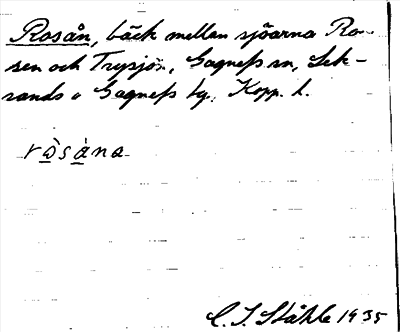 Rosån, bäck mellan sjöarna Ro-
sen och Trysjön, Gagnefs sn, Lek-
sands o Gagnefs tg. Kopp. l.
ròsàna
C. I. Ståhle 1935